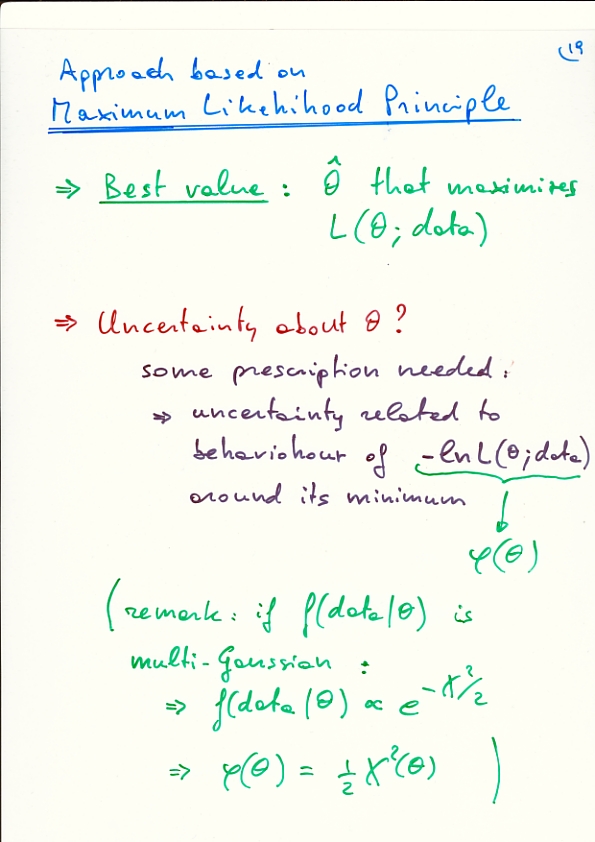 19
Approach based on
Maximum Likehihood Principle
⇒ Best value : θ̂ that maximizes
L(θ; data)
⇒ Uncertainty about θ?
some prescription needed:
⇒ uncertainty related to
behaviohour of -ln L(θ; data)
around its minimum
φ(θ)
(remark: if f(data|θ) is
multi-Gaussian :
⇒ f(data|θ) ∝ e^{-χ²/2}
⇒ φ(θ) = 1/2 χ²(θ) )